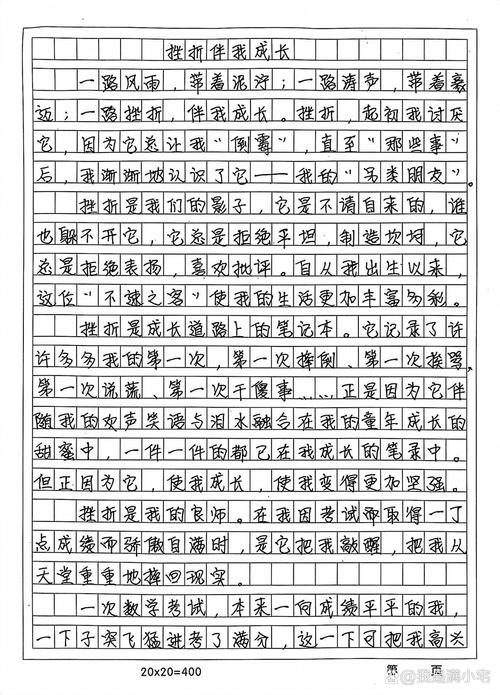 挫折伴我成长
一路风雨，带着泥泞；一路涛声，带着豪
迈；一路挫折，伴我成长。挫折，起初我讨厌
它，因为它总让我“倒霉”，直至“那些事”
后，我渐渐地认识了它——我的“另类朋友”。
挫折是我们的影子，它是不请自来的，谁
也躲不开它，它总是拒绝平坦，制造坎坷，它
总是拒绝表扬，喜欢批评。自从我出生以来，
这位“不速之客”使我的生活更加丰富多彩。
挫折是成长道路上的笔记本。它记录了许
许多多我的第一次，第一次摔倒、第一次挨骂、
第一次说谎、第一次干傻事……正是因为它伴
随我的欢声笑语与泪水融合在我的童年成长的
甜蜜中，一件一件的都记在我成长的笔录中。
但正因为它，使我成长，使我变得更加坚强。
挫折是我的良师。在我因考试而取得一了
点成绩而骄傲自满时，是它把我敲醒，把我从
天堂重重地摔回现实。
一次数学考试，本来一向成绩平平的我，
一下子突飞猛进考了满分，这一下可把我高兴
20×20=400
第 页